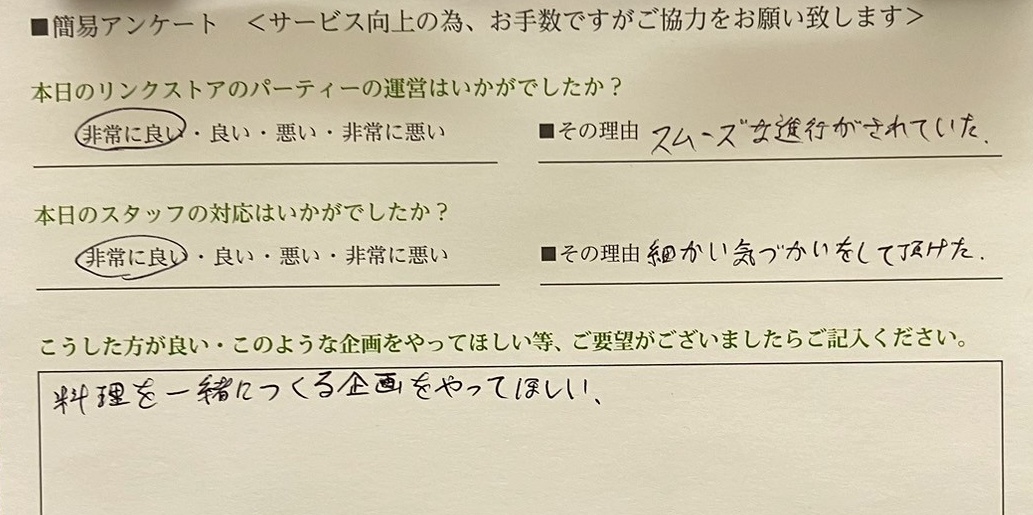 ■簡易アンケート <サービス向上の為、お手数ですがご協力をお願い致します>
本日のリンクストアのパーティーの運営はいかがでしたか？
非常に良い・良い・悪い・非常に悪い ■その理由 スムーズな進行がされていた.
本日のスタッフの対応はいかがでしたか？
非常に良い・良い・悪い・非常に悪い ■その理由 細かい気づかいをして頂けた.
こうした方が良い・このような企画をやってほしい等、ご要望がございましたらご記入ください。
料理を一緒につくる企画をやってほしい、